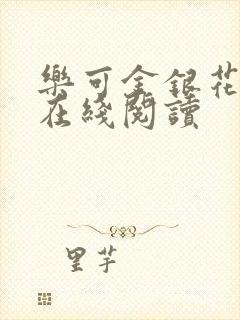 樂可金銀花
在綫閱讀
里芋